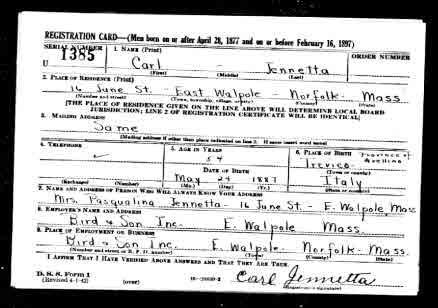 REGISTRATION CARD—(Men born on or after April 28, 1877 and on or before February 16, 1897)
SERIAL NUMBER 1. NAME (Print) ORDER NUMBER
U 1385 Carl - Jennetta
(First) (Middle) (Last)
2. PLACE OF RESIDENCE (Print)
16 June St. - East Walpole - Norfolk - Mass
(Number and street) (Town, township, village, or city) (County) (State)
[THE PLACE OF RESIDENCE GIVEN ON THE LINE ABOVE WILL DETERMINE LOCAL BOARD
JURISDICTION; LINE 2 OF REGISTRATION CERTIFICATE WILL BE IDENTICAL]
3. MAILING ADDRESS
Same
[Mailing address if other than place indicated on line 2. If same insert word same]
4. TELEPHONE 5. AGE IN YEARS 6. PLACE OF BIRTH Province of Avellino
54 Trevico
DATE OF BIRTH (Town or county)
May 24 1887 Italy
(Exchange) (Number) (Mo.) (Day) (Yr.) (State or country)
7. NAME AND ADDRESS OF PERSON WHO WILL ALWAYS KNOW YOUR ADDRESS
Mrs. Pasqualina Jennetta - 16 June St - E. Walpole, Mass
8. EMPLOYER'S NAME AND ADDRESS
Bird & Son Inc. E. Walpole Mass
9. PLACE OF EMPLOYMENT OR BUSINESS
Bird & Son Inc. E. Walpole - Norfolk - Mass.
(Number and street or R. F. D. number) (Town) (County) (State)
I AFFIRM THAT I HAVE VERIFIED ABOVE ANSWERS AND THAT THEY ARE TRUE.
D. S. S. Form 1
(Revised 4-1-42) (over) Carl Jennetta